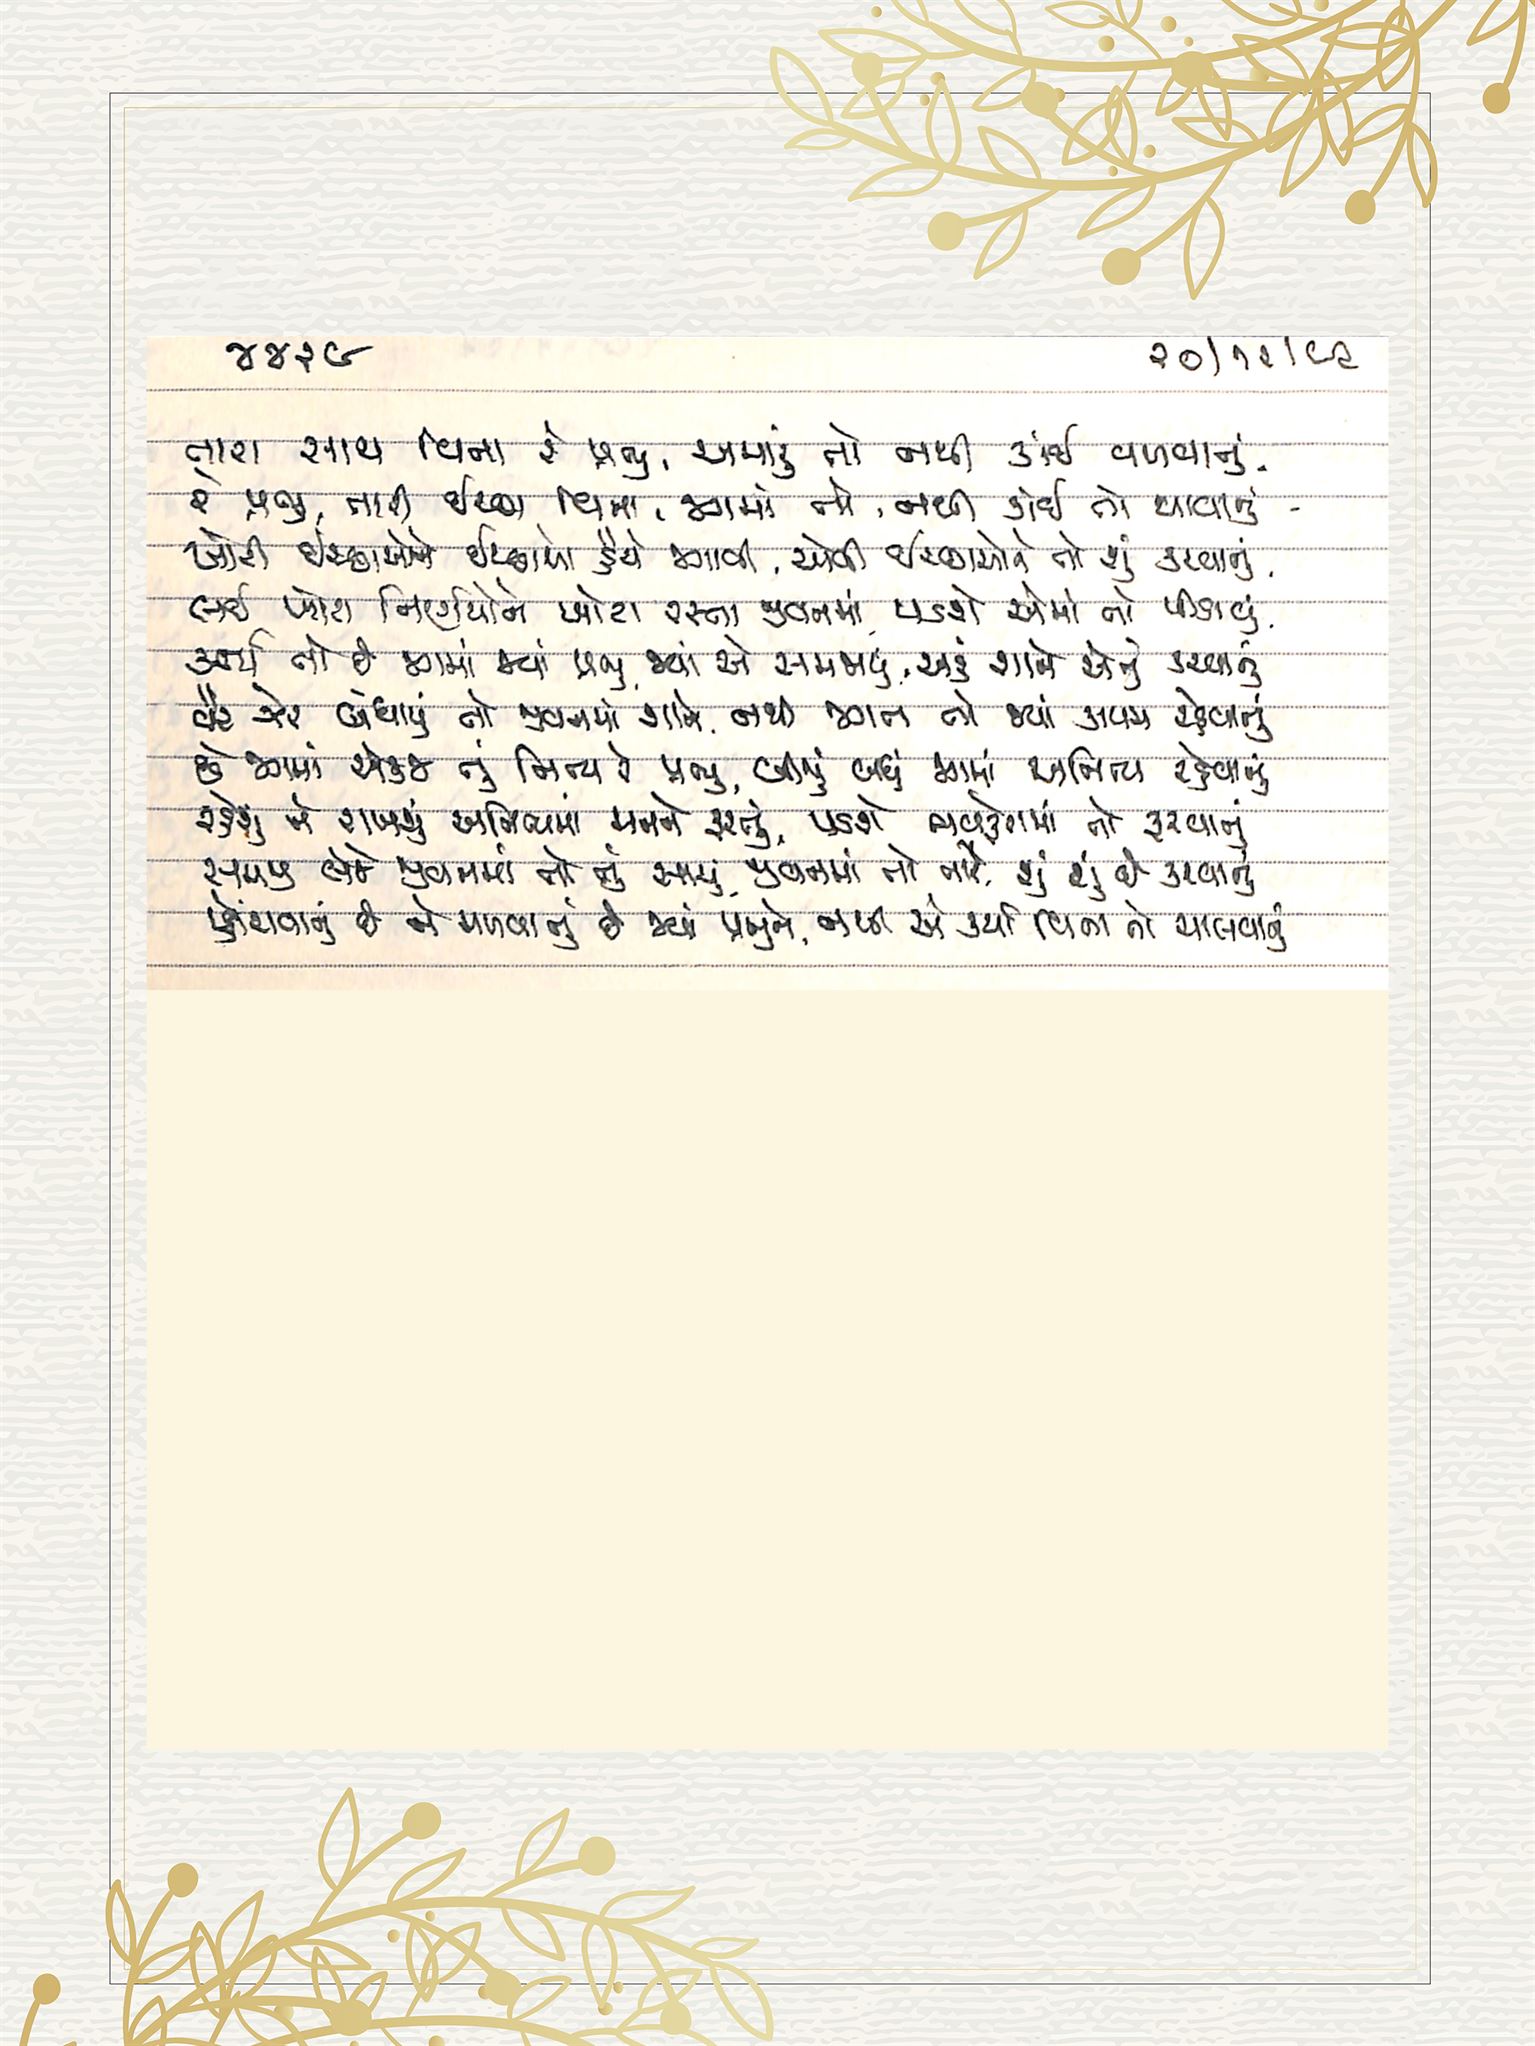 ૪૪૨૯ ૨૦/૧૨/૯૨
તારા સાથ વિના રે પ્રભુ, અમારું તો નથી કાંઈ વળવાનું.
રે પ્રભુ, તારી ઈચ્છા વિના, જગમાં તો, નથી કોઈ તો થાવાનું -
ખોટી ઈચ્છાઓને ઈચ્છાઓ હૈયે જાગી, એવી ઈચ્છાઓને તો શું કરવાનું.
લઈ ખોટા નિર્ણયોને ખોટા રસ્તા જીવનમાં, પડશે એમાં તો પીડાવું.
કાર્ય તો છે જગમાં જ્યાં પ્રભુ, જ્યાં એ સમજાયું, અહં શાને એનું કરવાનું
વૈર ઝેર બંધાયું તો જીવનમાં શાને, નથી જગત તો જ્યાં કાયમ રહેવાનું
છે જગમાં એકજ તું નિત્ય રે પ્રભુ, બીજું બધું જગમાં અનિત્ય રહેવાનું
રહેશું ને રાખશું અનિત્યમાં મનને ફરતું, પડશે ભવફેરામાં તો ફરવાનું
સમજી લેજે જીવનમાં તો તું સાચું, જીવનમાં તો તારે, શું શું છે કરવાનું
પહોંચવાનું છે ને મળવાનું છે જ્યાં પ્રભુને, નથી એ કર્યા વિના તો ચાલવાનું